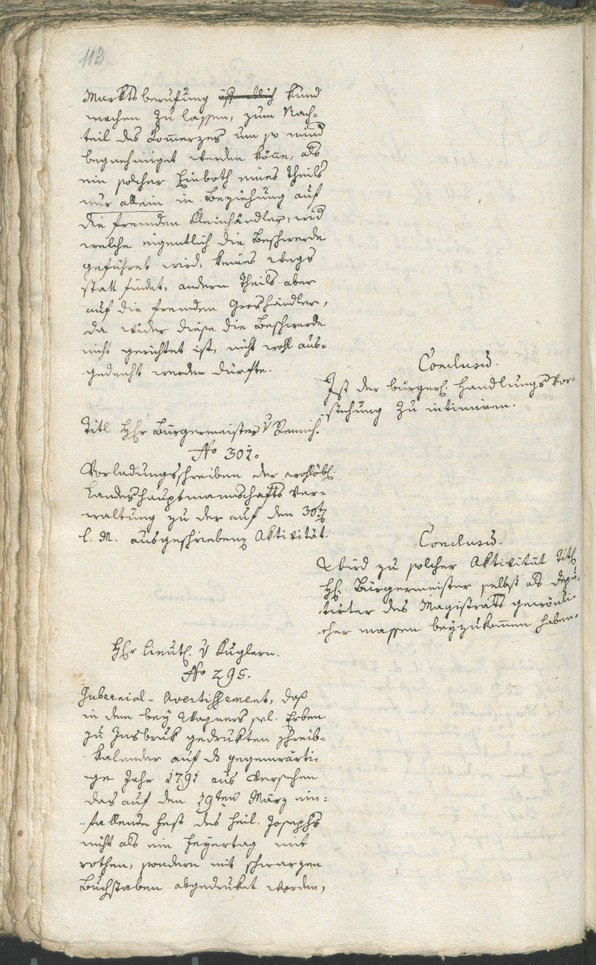 112
Marktsberufung kund
machen zu lassen, zum Nach-
teil des Commerzes um so mind
begnehmiget werden könne, als
ein solcher Einboth eines Theils
nur allein in Beziehung auf
die fremden Kleinhändler, wid
welche eigentlich die Beschwerde
geführet wird, keines Wegs
statt findet, andern Theils aber
auf die fremden Groshändler,
da wider diese die Beschwerde
nicht gerichtet ist, nicht wohl aus-
gedacht werden dürfte.
Conclusum.
Ist der bürgerl. Handlungs Vor-
stehung zu intimiren.
Titl HHr Bürgermeister v
No 301.
Vorladungsschreiben der wohllöbl.
Landeshauptmannschafts Ver-
waltung zu der auf den 30t
l. M. ausgeschriebenen Aktivität.
Conclusum.
Wird zu solcher Aktivität Titl
HH. Bürgermeister selbst als Depu-
tirter des Magistrats gewönli-
cher massen beyzukommen haben.
HHr Lieut. v Kuglern.
No 295.
Gubernial-Avertissement, daß
in dem bey Wagners sel. Erben
zu Insbruk gedrukten Schreib-
kalender auf d gegenwärti-
ge Jahr 1791 aus Versehen
das auf den 19ten März ein-
fallende Fest des heil. Josephs
nicht als ein Feyertag mit
rothen, sondern mit schwarzen
Buchstaben abgedrukt worden,